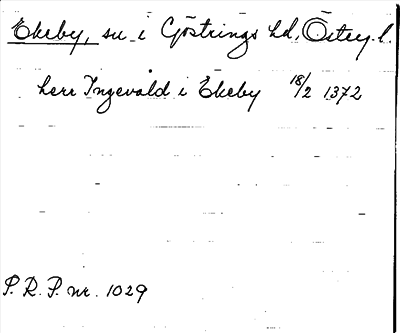 Ekeby, su i Göstrings hd, Österg. l.
herr Ingevald i Ekeby 18/2 1372
P. R. P. nr. 1029